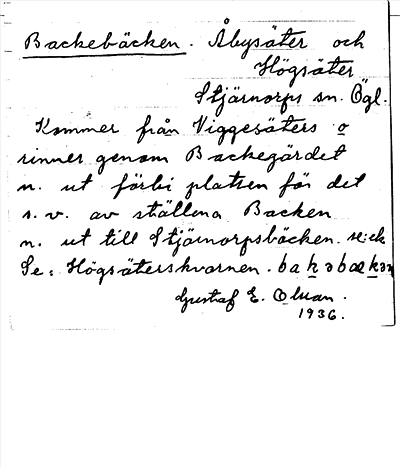 Backebäcken. Åbysäter och
Högsäter
Stjärnorps sn. Ögl.
Kommer från Viggesäters o
rinner genom Backegärdet
n. ut förbi platsen för det
s. v. av ställena Backen
n. ut till Stjärnorpsbäcken.
Se: Högsäterskvarnen. bakəbækən
Gustaf E. Olsson.
1936.